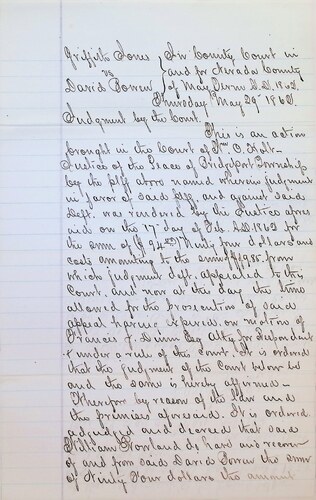 Griffith Jones } In County Court in
vs } and for Nevada County
David Bowen } of May Term A.D. 1862.
Thursday May 29th 1862.
Judgment by the Court.
This is an action
brought in the Court of Wm. C. Holt
Justice of the Peace of Bridgeport Township
by the plff above named wherein judgment
in favor of said plff and against said
Deft. was rendered by the Justice afores
aid on the 17 day of Feb. A.D. 1862 for
the sum of ($94) Ninty four dollars and
costs amounting to the sum of from
which judgment deft. appealed to this
Court, and now at this day the time
allowed for the prosecution of said
appeal having expired, on motion of
Francis J. Dunn Esq Atty for Respondent
under a rule of this Court. It is ordered
that the judgment of the Court below be
and the same is hereby affirmed—
Wherefore by reason of the law and
the premises aforesaid. It is ordered
adjudged and decreed that said
William Rowlands, have and recover
of and from said David Bowen the sum
of Ninty Four dollars the amount